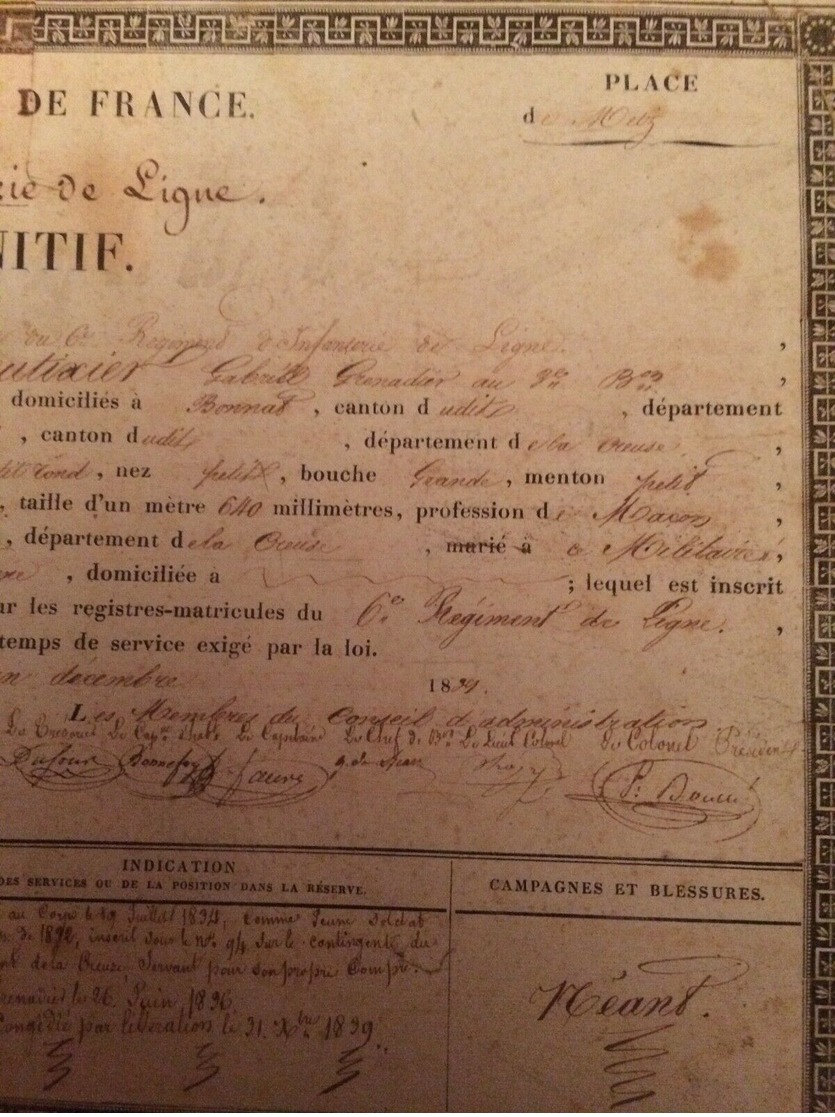 DE FRANCE.
PLACE
de Metz
rie de Ligne.
NITIF.
du 6e Regiment d'Infanterie de Ligne. ,
Gabriel Grenadier au 3e Bon ,
domiciliés à Bonnat , canton d udit , département
, canton dudit , département de la Creuse ,
rond , nez petit , bouche Grande , menton petit ,
, taille d'un mètre 640 millimètres, profession de Maçon ,
, département de la Creuse , marié à Militaire ,
, domiciliée à ; lequel est inscrit
ur les registres-matricules du 6e Régiment de Ligne. ,
temps de service exigé par la loi.
un décembre 1839.
Les Membres du Conseil d'administration
Le Trésorier Le Cape Le Capitaine Le Chef de Bon Le Lieut Colonel Le Colonel Président
Dufour
INDICATION
DES SERVICES OU DE LA POSITION DANS LA RÉSERVE.
CAMPAGNES ET BLESSURES.
au Corps le 19 Juillet 1834, comme Jeune soldat
de 1832, inscrit sous le No 94 sur le contingent du
de la Creuse, Servant pour son propre Compte.
Grenadier le 26 Juin 1836
Congédié par libération le 31 Xbre 1839.
Néant.